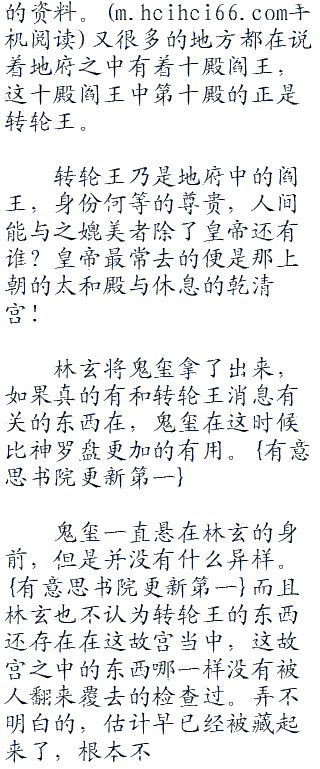 的资料。(m.hcihci66.com手
机阅读)又很多的地方都在说
着地府之中有着十殿阎王，
这十殿阎王中第十殿的正是
转轮王。
转轮王乃是地府中的阎
王，身份何等的尊贵，人间
能与之媲美者除了皇帝还有
谁？皇帝最常去的便是那上
朝的太和殿与休息的乾清
宫！
林玄将鬼玺拿了出来，
如果真的有和转轮王消息有
关的东西在，鬼玺在这时候
比神罗盘更加的有用。{有意
思书院更新第一}
鬼玺一直悬在林玄的身
前，但是并没有什么异样。
{有意思书院更新第一}而且
林玄也不认为转轮王的东西
还存在在这故宫当中，这故
宫之中的东西哪一样没有被
人翻来覆去的检查过。弄不
明白的，估计早已经被藏起
来了，根本不